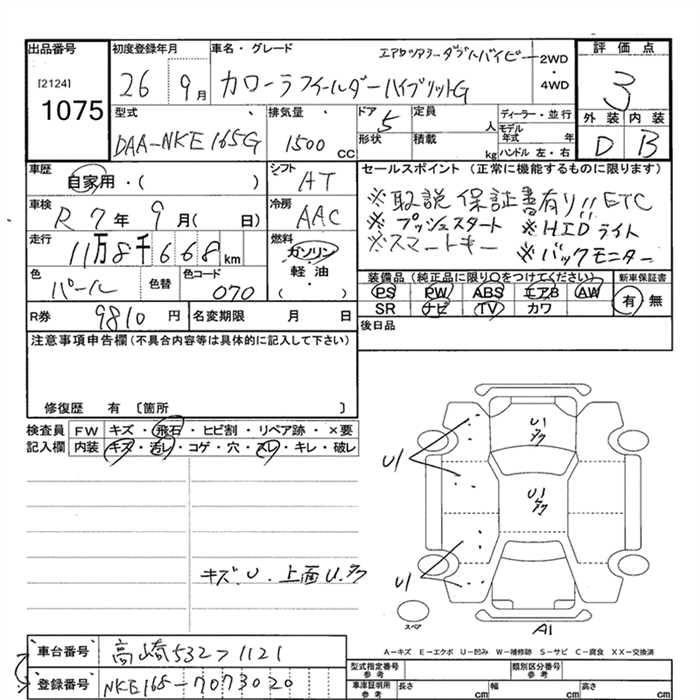 出品番号
[2124]
1075
初度登録年月
26 9月
車名・グレード
エアロツアラーダブルバイビー
カローラフィールダーハイブリットG
2WD
・
4WD
評価点
3
外装 内装
D B
型式
DAA-NKE165G
排気量
1500 CC
ドア 5
形状
定員 人
積載 kg
ディーラー・並行
モデル年式 年
ハンドル 左・右
車歴
自家用・( )
シフト
AT
車検
R7年9月( 日)
冷房
AAC
走行
11万8千668km
燃料
ガソリン
軽油
( ・ )
色
パール
色替
色コード
070
R券 9810円
名変期限 月 日
セールスポイント(正常に機能するものに限ります)
※取説保証書有り!! ETC
※プッシュスタート ※HIDライト
※スマートキー ※バックモニター
装備品(純正品に限り○をつけてください)
新車保証書
PS PW ABS エアB AW
SR ナビ TV カワ
有 無
後日品
注意事項申告欄(不具合内容等は具体的に記入して下さい)
修復歴 有 〔箇所 〕
検査員記入欄
FW キズ・飛石・ヒビ割・リペア跡・×要
内装 キズ・汚レ・コゲ・穴・スレ・キレ・破レ
キズ.U.上面U.タク
U1
タク
U1
タク
U1
U1
スペア
A1
A-キズ E-エクボ U-凹み W-補修跡 S-サビ C-腐食 XX-交換済
車台番号
高崎532フ1121
登録番号
NKE165-7073020
型式指定番号参考
類別区分番号参考
車庫証明用参考
長さ cm
幅 cm
高さ cm